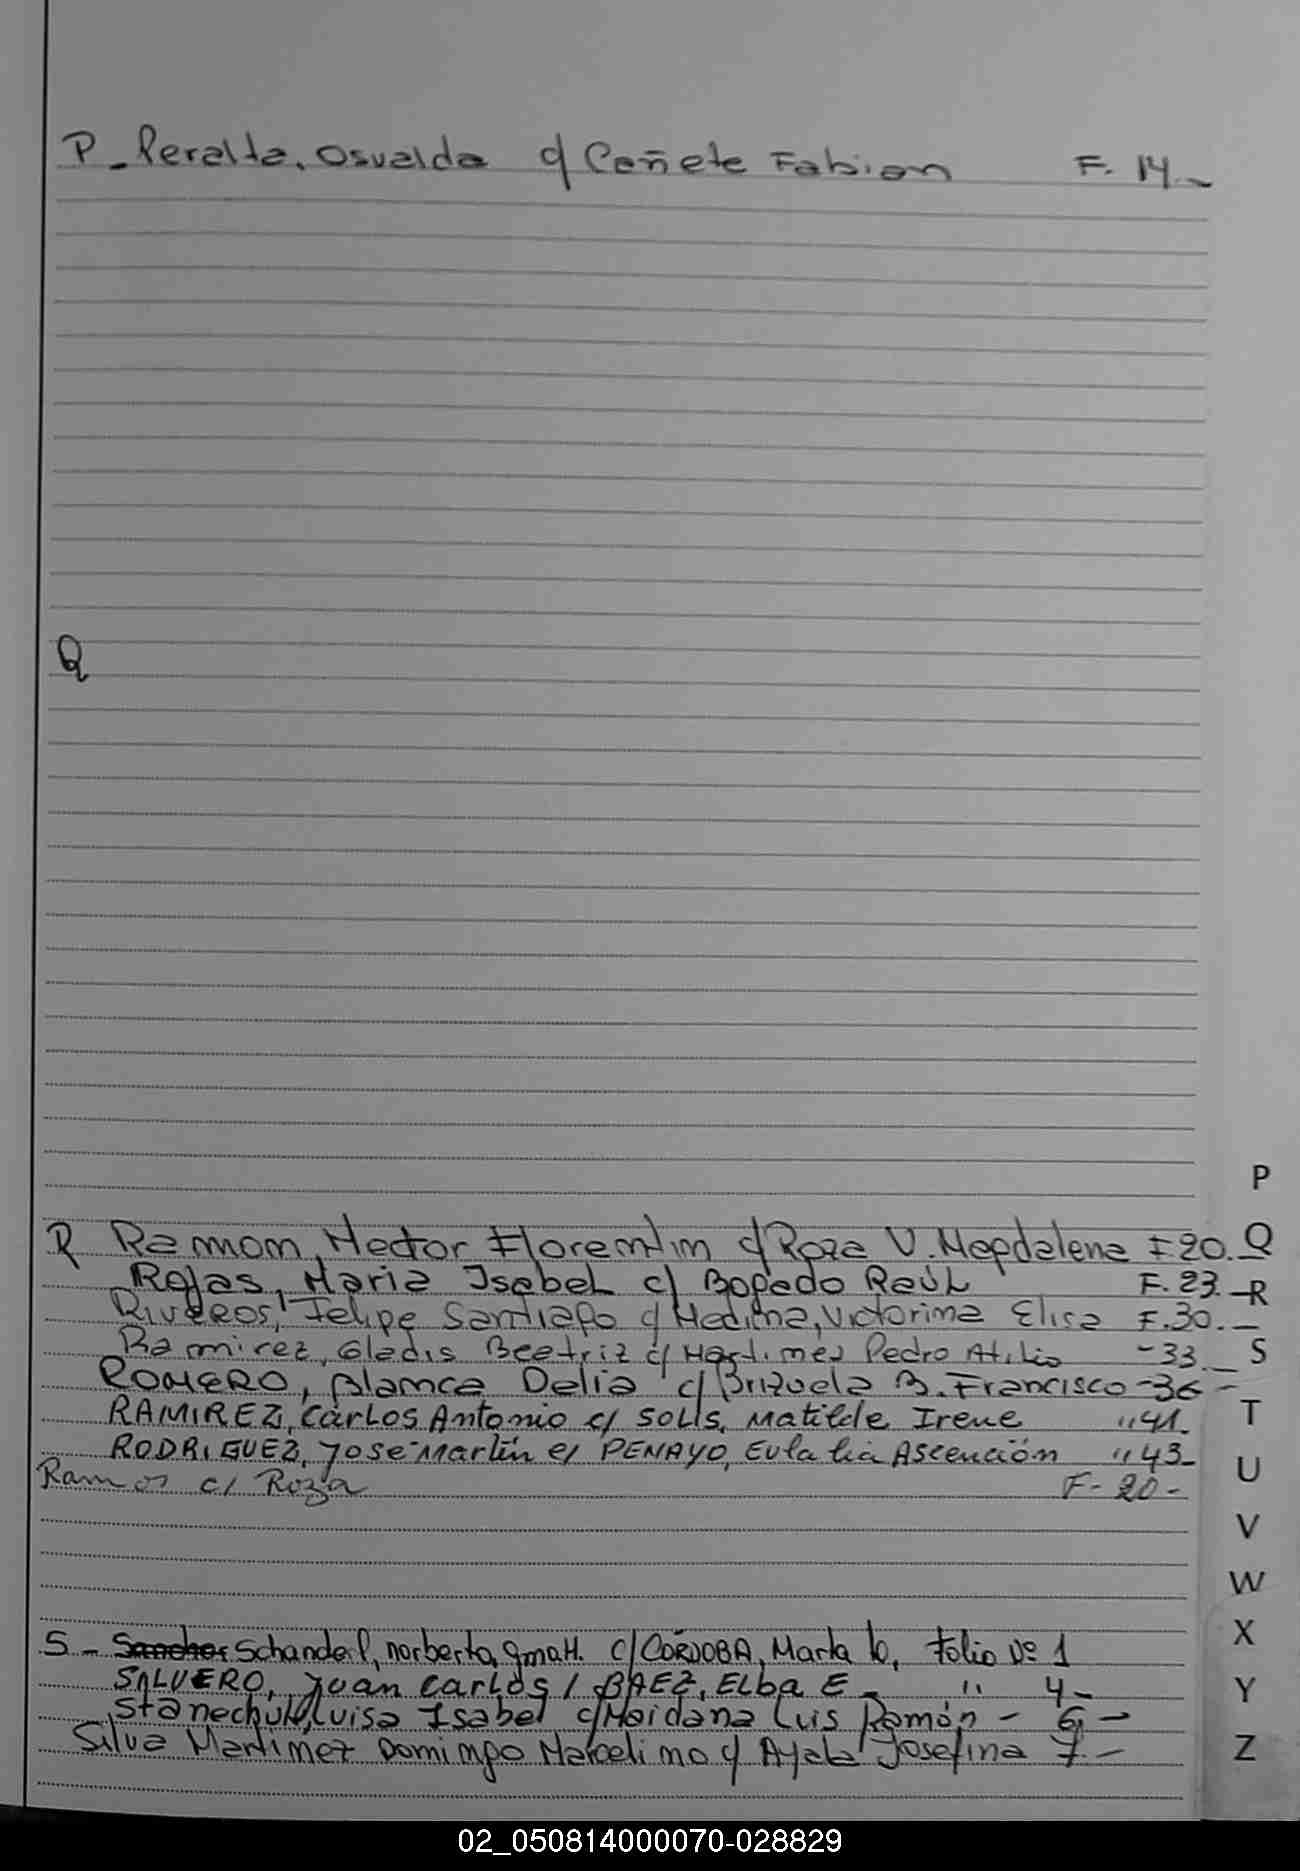 P - Peralta, Osvaldo c/ Cañete Fabian F. 14.-
Q
R Ramon, Hector Florentin c/ Roza V. Magdalena F 20.-
Rojas, Maria Isabel c/ Bogado Raúl F. 23.-
Riveros, Felipe Santiago c/ Medina, Victorina Elisa F. 30.-
Ramirez, Gladis Beatriz c/ Martinez Pedro Atilio - 33.-
ROMERO, Blanca Delia c/ Brizuela B. Francisco - 36 -
RAMIREZ, Carlos Antonio c/ SOLIS, Matilde Irene " 41.
RODRIGUEZ, Jose Martin c/ PENAYO, Eulalia Ascención " 43-
Ramon c/ Roza F- 20-
S - Sanchez Schanderl, norberto, c/ CÓRDOBA, Marta folio Nº 1
SALUERO, Juan Carlos / BAEZ, Elba E - " 4-
Luisa Isabel c/ Maidana Luis Ramón - 6 -
Silva Martinez Domingo Marcelino c/ Ayala Josefina 7.-
P
Q
R
S
T
U
V
W
X
Y
Z
02_050814000070-028829